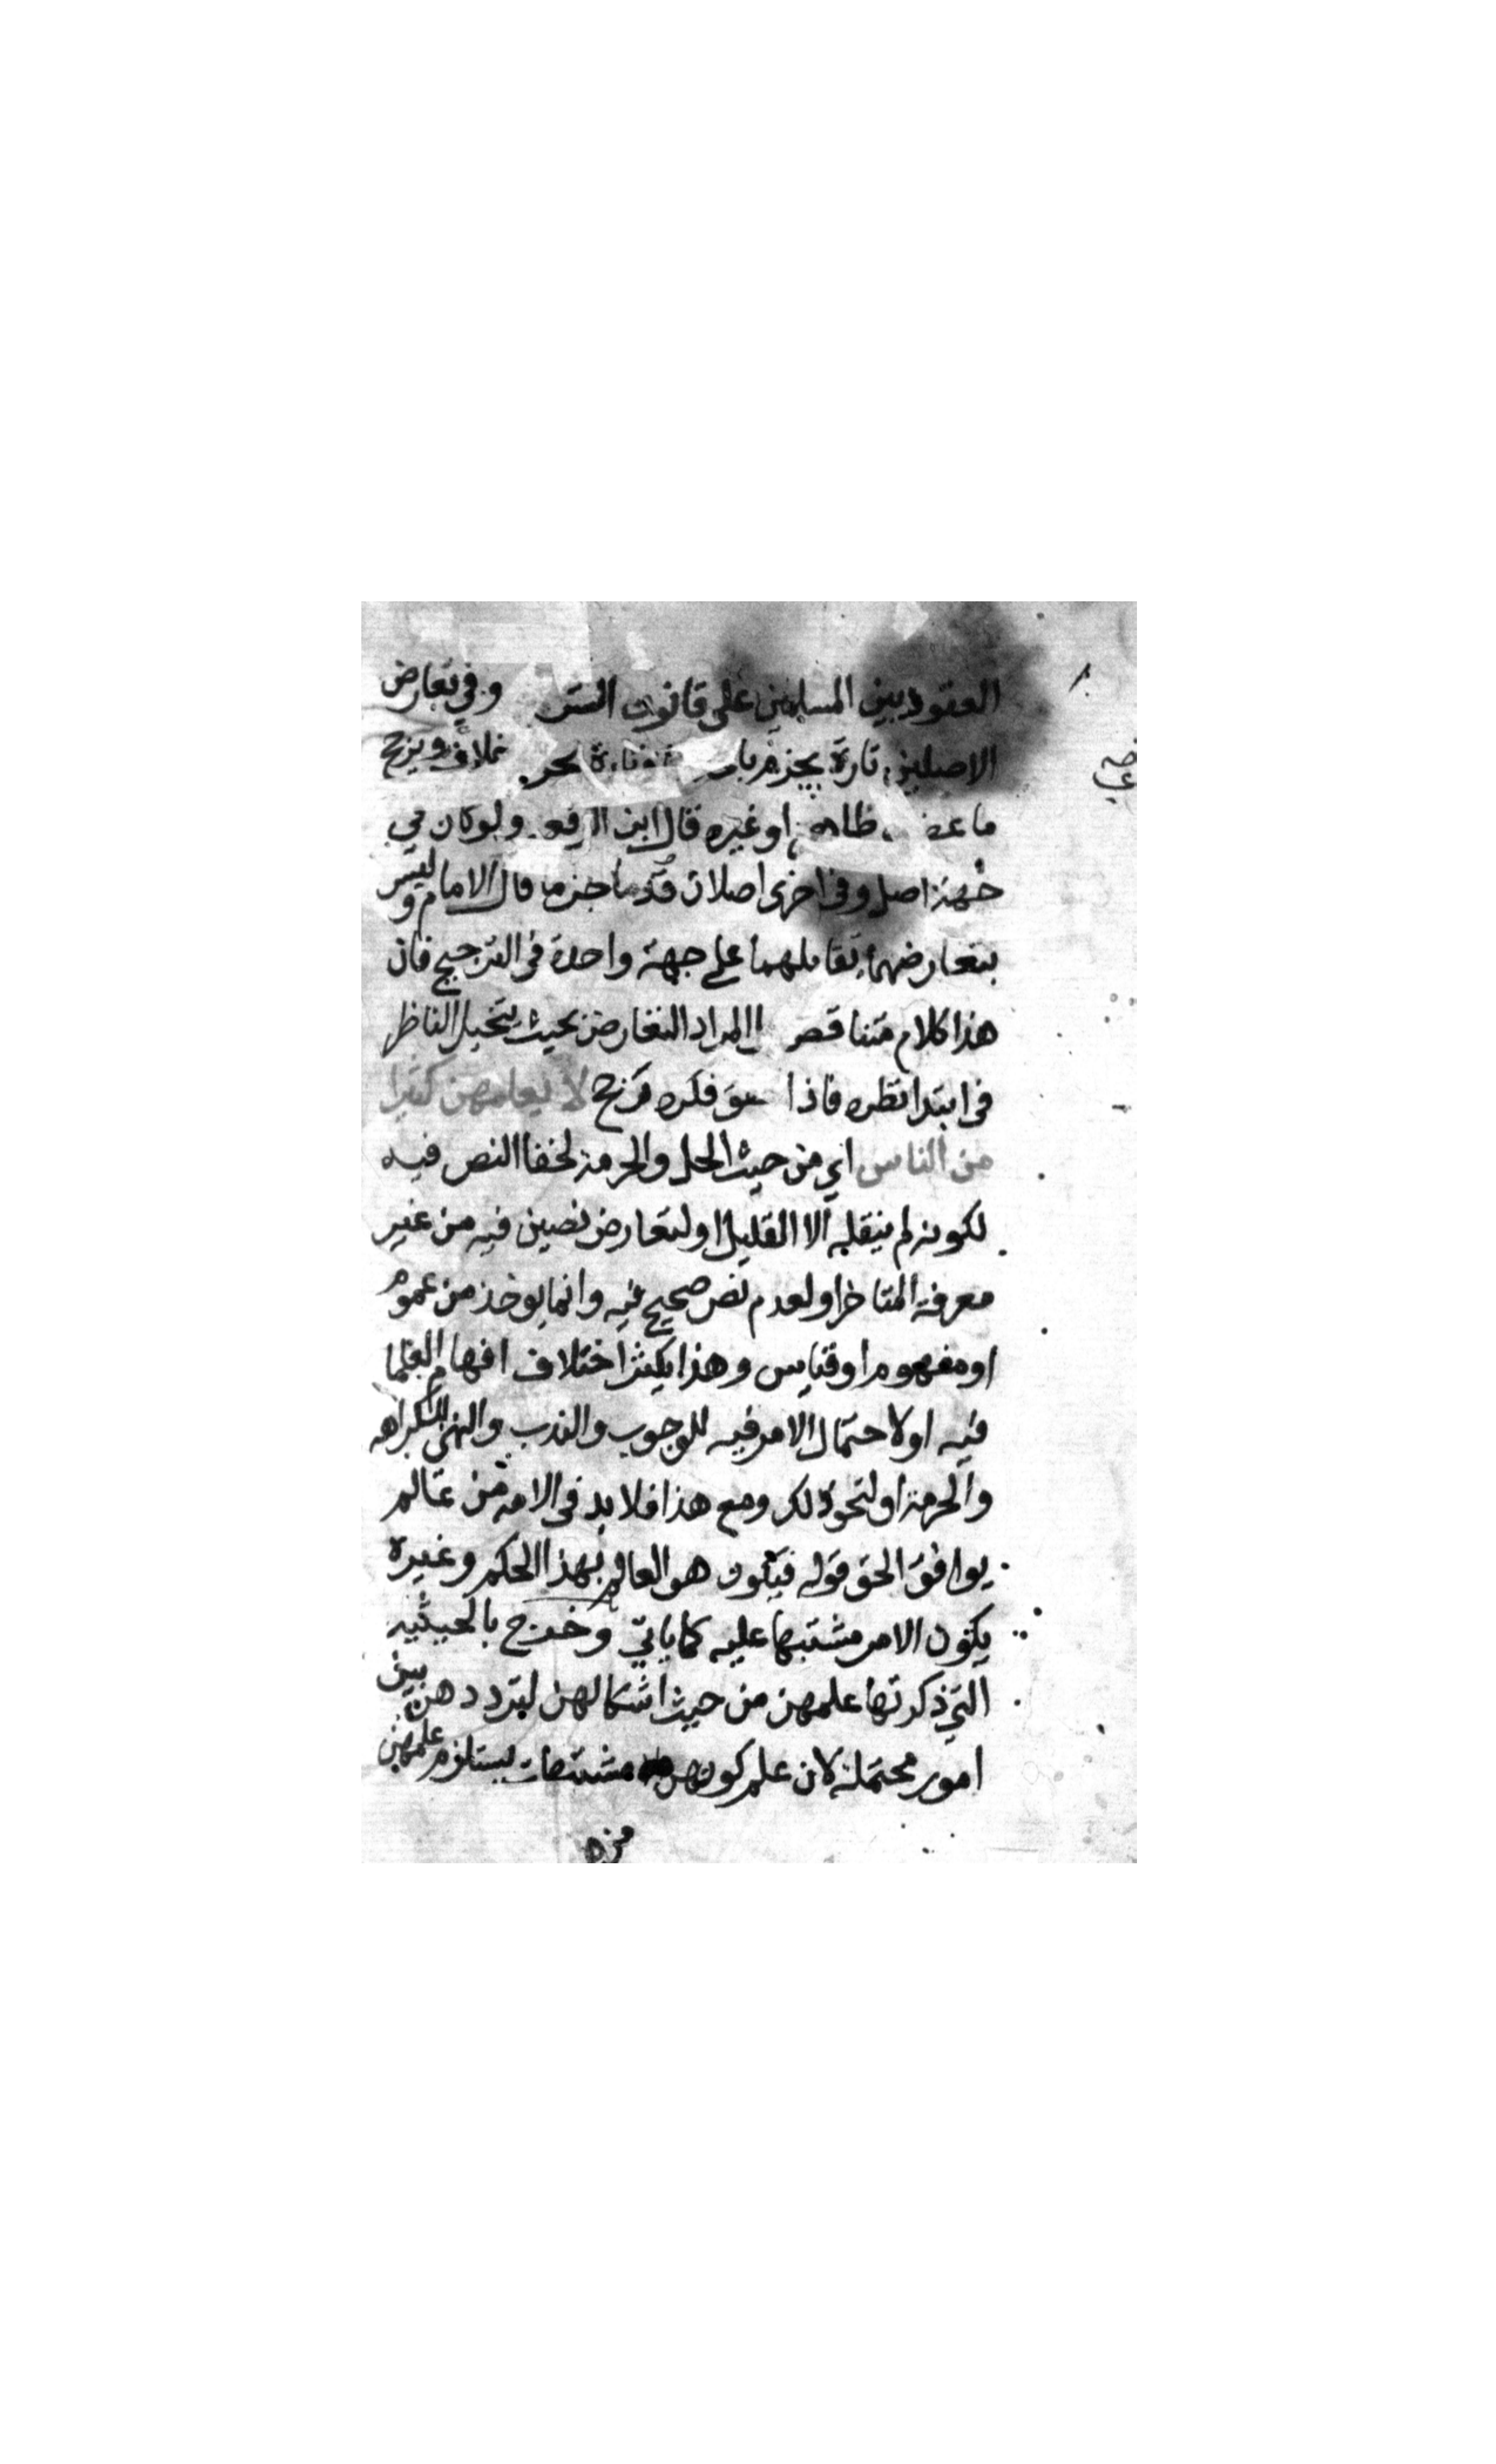 العقود بين المسلمين على قانون الشرع وفي تعارض
الاصلين تارة يجزم وتارة يجر خلاف ويرجح
ما ظاهر او غيره قال ابن الرفعه ولو كان في
جهة اصل وفي اخرى اصلان قدما جزما قال الامام وليس
بتعارضهما تقابلهما على جهة واحدة في الترجيح فان
هذا كلام متناقض المراد التعارض بحيث يتخيل الناظر
في ابتدا نظره فاذا فكره رجح لا يعلمهن كثير
من الناس اي من حيث الحل والحرمة لخفا النص فيه
لكونه لم ينقله الا القليل او لتعارض نصين فيه من غير
معرفة المتاخر او لعدم نص صحيح فيه وانما يوخذ من عموم
او مفهوم او قياس وهذا يكثر اختلاف افهام العلما
فيه او لاحتمال الامر فيه للوجوب والندب والنهي للكراهه
والحرمة او لنحو ذلك ومع هذا فلا بد في الامه من عالم
يوافق الحق قوله فيكون هو العالم بهذا الحكم وغيره
يكون الامر مشتبها عليه كما ياتي وخرج بالحيثيه
التي ذكرتها علمهن من حيث اشكالهن لترددهن بين
امور محتملة لان علم كونهن مشتبهات يستلزم علمهن